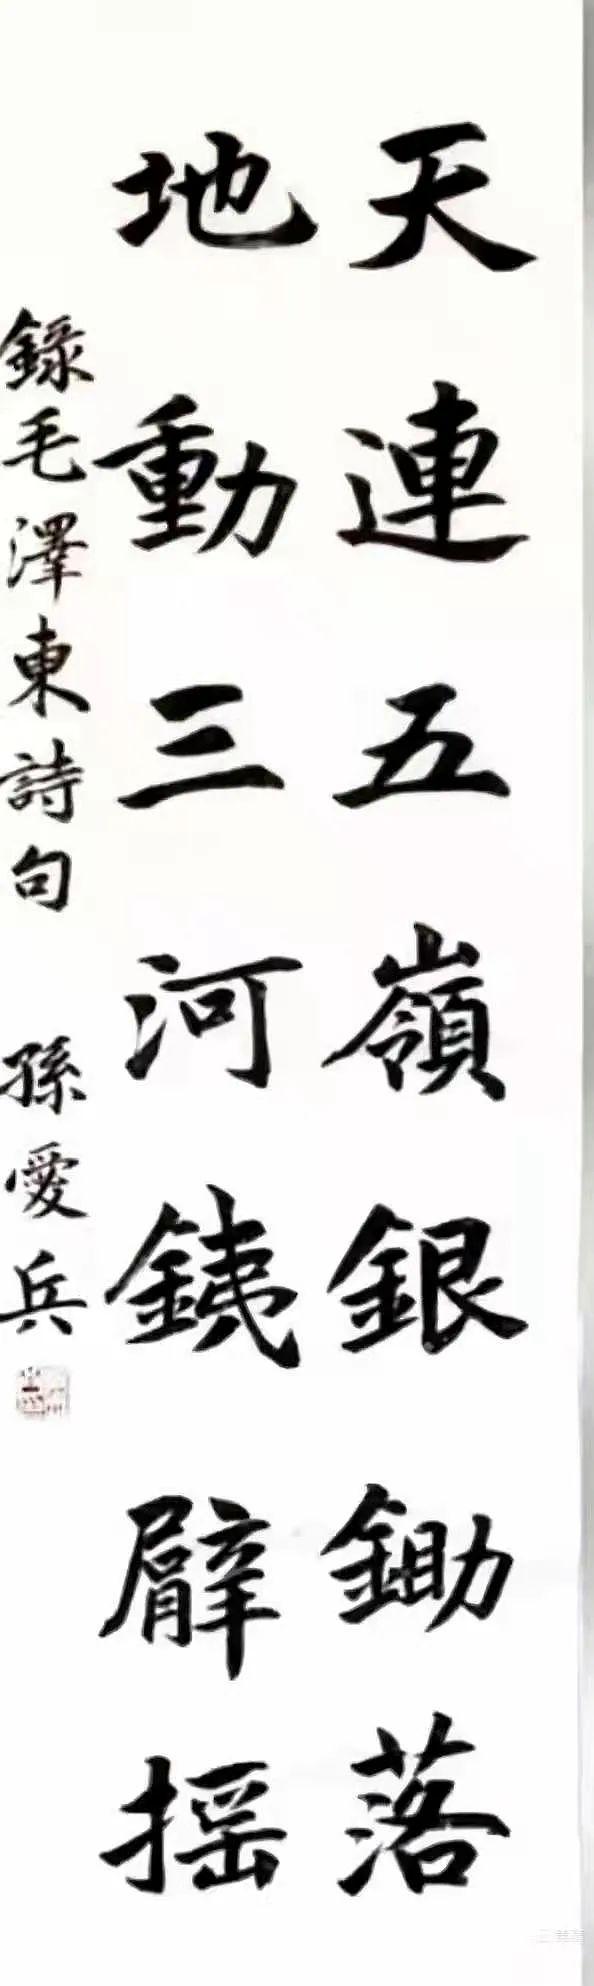 天連五嶺銀鋤落
地動三河銕臂摇
錄毛澤東詩句 孫愛兵